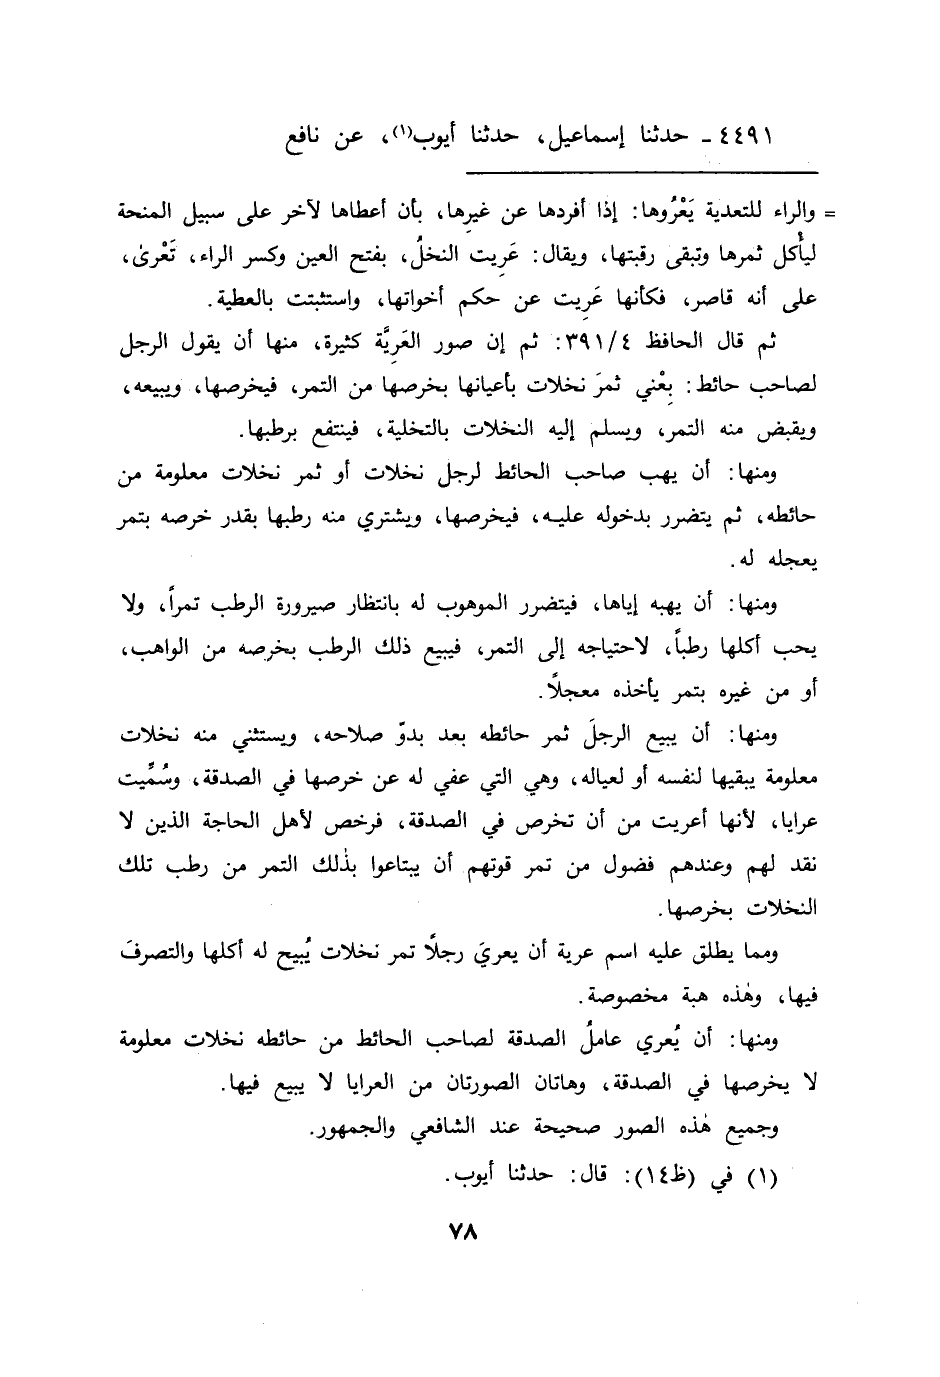 ٤٤٩١ ـ حدثنا إسماعيل، حدثنا أيوب(١)، عن نافع
= والراء للتعدية يَعْرُوها: إذا أفردها عن غيرها، بأن أعطاها لآخر على سبيل المنحة
ليأكل ثمرها وتبقى رقبتها، ويقال: عَرِيت النخلُ، بفتح العين وكسر الراء، تَعْرىٰ،
على أنه قاصر، فكأنها عَرِيت عن حكم أخواتها، واستثبتت بالعطية.
ثم قال الحافظ ٣٩١/٤: ثم إن صور العَرِيَّة كثيرة، منها أن يقول الرجل
لصاحب حائط: بِعْني ثمرَ نخلات بأعيانها بخرصها من التمر، فيخرصها، ويبيعه،
ويقبض منه التمر، ويسلم إليه النخلات بالتخلية، فينتفع برطبها.
ومنها: أن يهب صاحب الحائط لرجل نخلات أو ثمر نخلات معلومة من
حائطه، ثم يتضرر بدخوله عليه، فيخرصها، ويشتري منه رطبها بقدر خرصه بتمر
يعجله له.
ومنها: أن يهبه إياها، فيتضرر الموهوب له بانتظار صيرورة الرطب تمراً، ولا
يحب أكلها رطباً، لاحتياجه إلى التمر، فيبيع ذلك الرطب بخرصه من الواهب،
أو من غيره بتمر يأخذه معجلاً.
ومنها: أن يبيع الرجلَ ثمر حائطه بعد بدوّ صلاحه، ويستثني منه نخلات
معلومة يبقيها لنفسه أو لعياله، وهي التي عفي له عن خرصها في الصدقة، وسُمِّيت
عرايا، لأنها أعريت من أن تخرص في الصدقة، فرخص لأهل الحاجة الذين لا
نقد لهم وعندهم فضول من تمر قوتهم أن يبتاعوا بذٰلك التمر من رطب تلك
النخلات بخرصها.
ومما يطلق عليه اسم عرية أن يعريَ رجلًا تمر نخلات يُبيح له أكلها والتصرفَ
فيها، وهٰذه هبة مخصوصة.
ومنها: أن يُعري عاملُ الصدقة لصاحب الحائط من حائطه نخلات معلومة
لا يخرصها في الصدقة، وهاتان الصورتان من العرايا لا يبيع فيها.
وجميع هٰذه الصور صحيحة عند الشافعي والجمهور.
(١) في (ظ١٤): قال: حدثنا أيوب.
٧٨